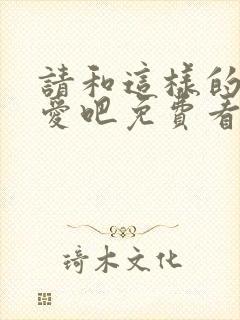 請和這樣的
愛吧免費看
琦木文化